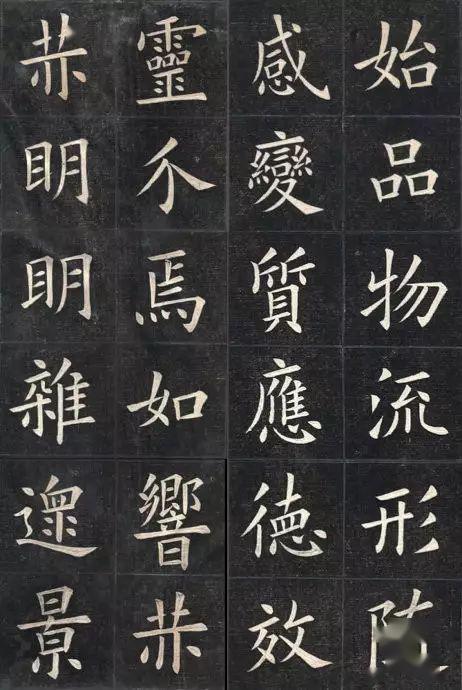 始品物流形
感變質應德效
靈介焉如響赫
赫明明雜遝景